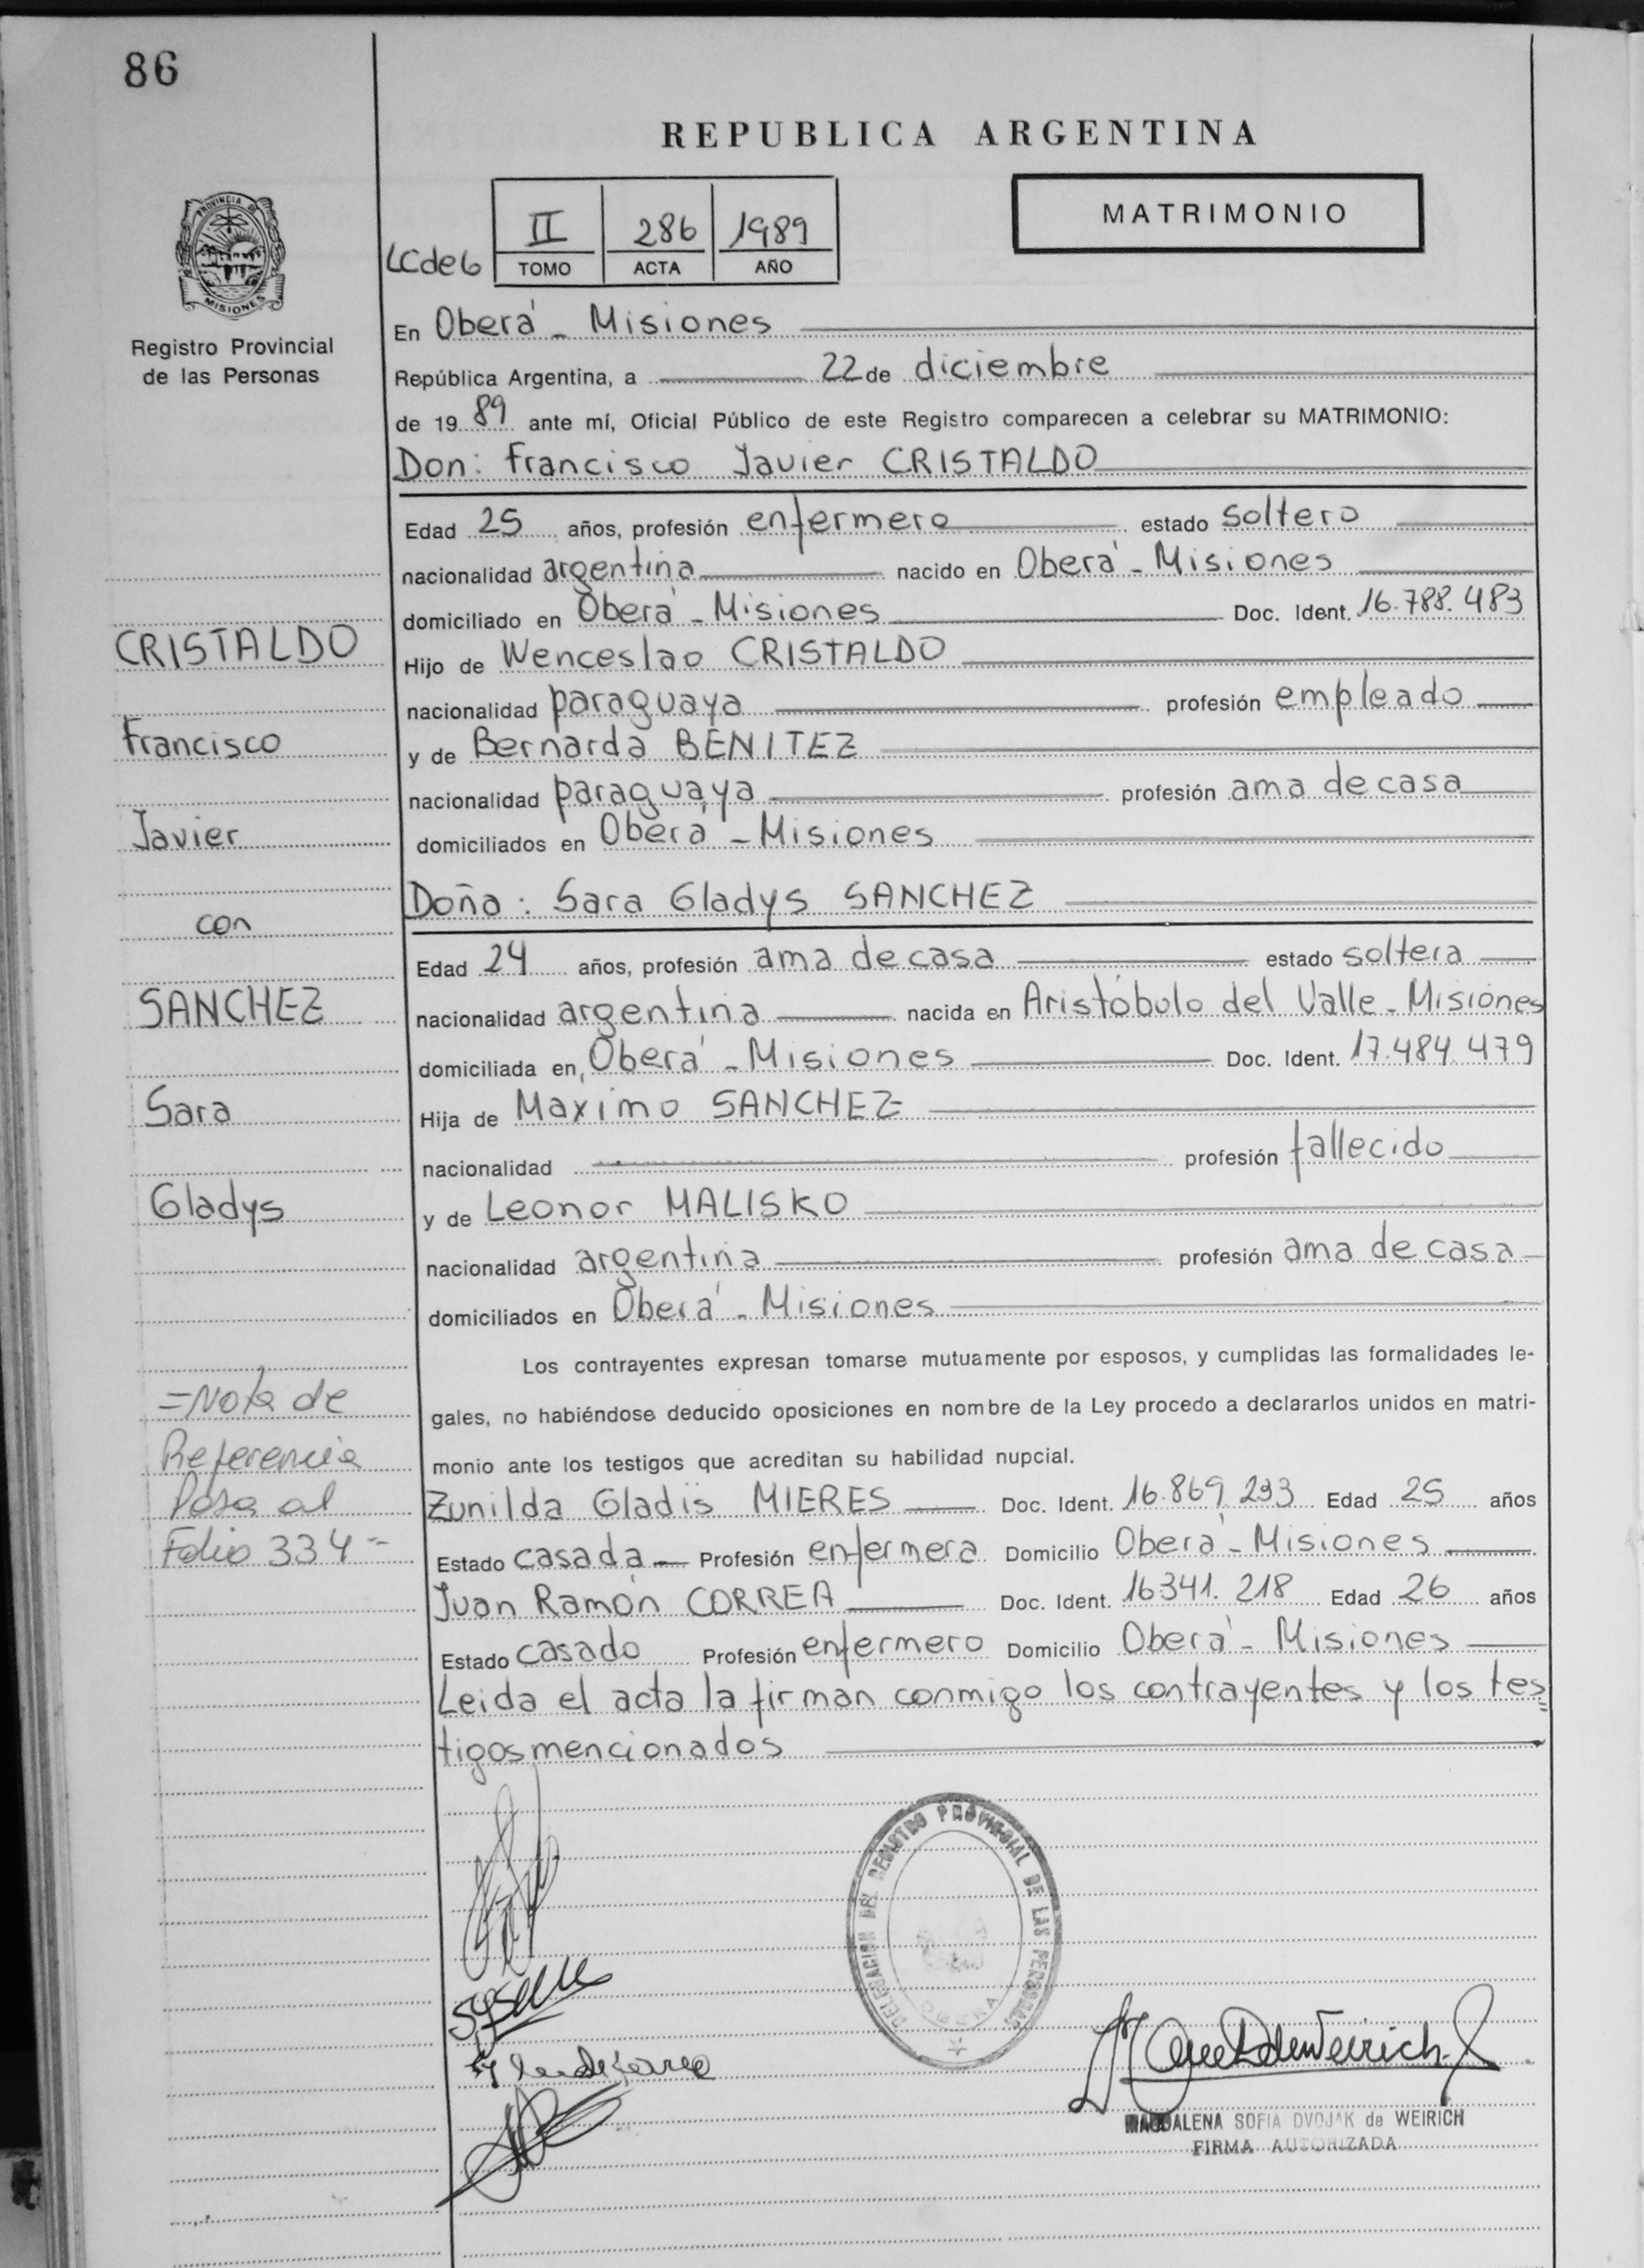 86
REPUBLICA ARGENTINA
MATRIMONIO
II 286 1989
LC de 6
TOMO ACTA AÑO
PROVINCIA DE
MISIONES
Registro Provincial
de las Personas
En Oberá - Misiones
República Argentina, a 22 de diciembre
de 1989 ante mí, Oficial Público de este Registro comparecen a celebrar su MATRIMONIO:
Don: Francisco Javier CRISTALDO
Edad 25 años, profesión enfermero estado soltero
nacionalidad argentina nacido en Oberá - Misiones
domiciliado en Oberá - Misiones Doc. Ident. 16.788.483
Hijo de Wenceslao CRISTALDO
nacionalidad paraguaya profesión empleado
y de Bernarda BENITEZ
nacionalidad paraguaya profesión ama de casa
domiciliados en Oberá - Misiones
Doña: Sara Gladys SANCHEZ
Edad 24 años, profesión ama de casa estado soltera
nacionalidad argentina nacida en Aristóbulo del Valle - Misiones
domiciliada en, Oberá - Misiones Doc. Ident. 17.484.479
Hija de Maximo SANCHEZ
nacionalidad profesión fallecido
y de Leonor MALISKO
nacionalidad argentina profesión ama de casa
domiciliados en Oberá - Misiones
Los contrayentes expresan tomarse mutuamente por esposos, y cumplidas las formalidades le-
gales, no habiéndose deducido oposiciones en nombre de la Ley procedo a declararlos unidos en matri-
monio ante los testigos que acreditan su habilidad nupcial.
Zunilda Gladis MIERES Doc. Ident. 16.869.293 Edad 25 años
Estado casada Profesión enfermera Domicilio Oberá - Misiones
Juan Ramón CORREA Doc. Ident. 16341.218 Edad 26 años
Estado casado Profesión enfermero Domicilio Oberá - Misiones
Leida el acta la firman conmigo los contrayentes y los tes=
tigos mencionados
CRISTALDO
Francisco
Javier
con
SANCHEZ
Sara
Gladys
=Nota de
Referencia
Pasa al
Folio 334=
DELEGACION DEL REGISTRO PROVINCIAL DE LAS PERSONAS
OBERA
MAGDALENA SOFIA DVOJAK de WEIRICH
FIRMA AUTORIZADA